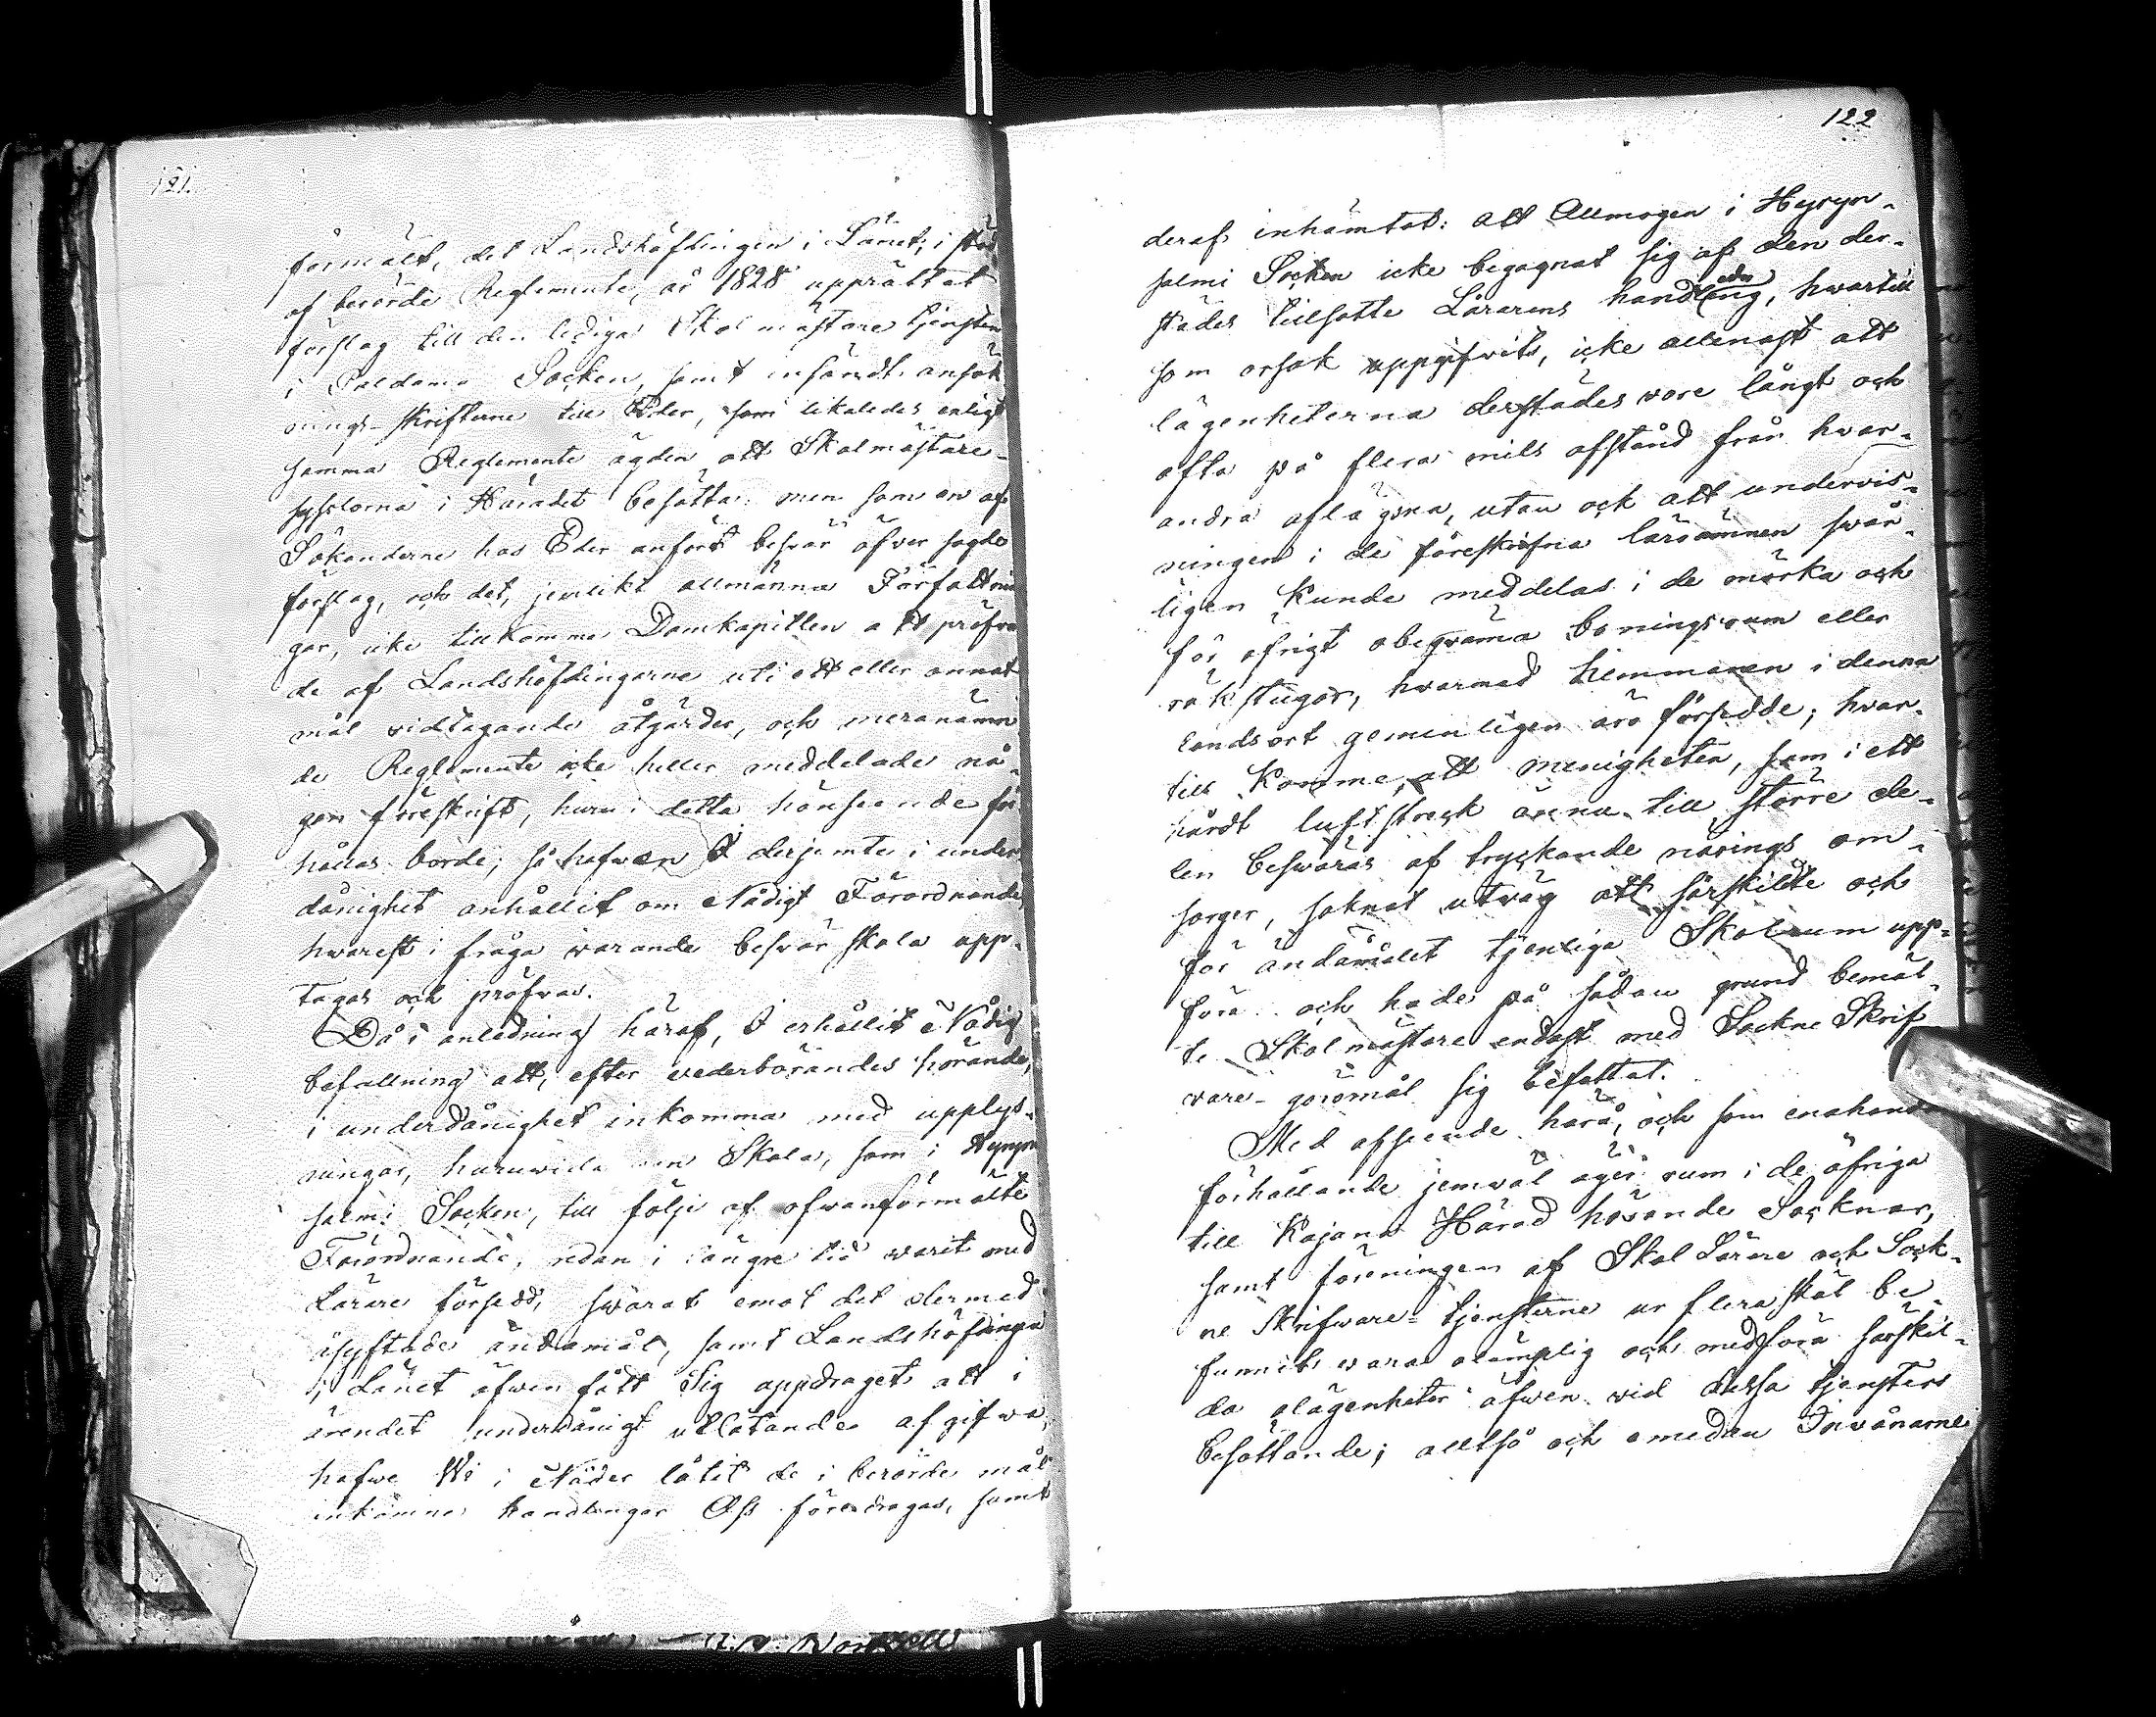 121.
förmält, det Landshöfdingen i Länet, i stöd
af berörde Reglemente, år 1828 upprättat
förslag till den lediga Skolmästare tjensten
i Paldamo Socken, samt insändt ansök
nings-skrifterne till Eder, som likaledes enligt
samma Reglemente ägden att Skolmästare-
sysslorna i Häradet besätta: men som en af
Sökanderne hos Eder anfört besvär öfver sagde
förslag, och det, jemlikt allmänna Författnin
gar, icke tillkomme Domkapitlen att pröfva
de af Landshöfdingarne uti ett eller annat
mål vidtagande åtgärder, och meranämn
de Reglemente icke heller meddelade nå-
gon föreskrift, huru i detta hänseende för
hållas borde; så hafwen I derjemte i under
dånighet anhållit om Nådigt Förordnande,
hwarest i fråga warande besvär skola upp-
tagas och pröfvas.
Då i anledning häraf, I erhållit Nådig
befallning att, efter vederbörandes hörande,
i underdånighet inkomma med upplys-
ningar, huruwida den Skola, som i Hyryn
salmi Socken, till följe af ofvanförmälte
Förordnande, redan i längre tid warit med
Lärare försedd, swarat emot det dermed
åsyftade ändamål, samt Landshöfdingen
i Länet äfwen fått Sig uppdraget att i
ärendet underdånigt utlåtande afgifwa,
hafwe Wi i Nåder låtit de i berörde mål
inkomne handlingar Oss föredragas, samt
122
deraf inhämtat: att Allmogen i Hyryn-
salmi Socken icke begagnat sig af den der-
städes tillsatte Lärarens handledning, hwartill
som orsak uppgifwits, icke allenast att
lägenheterna derstädes vore långt och
ofta på flera mils afstånd från hwar-
andra aflägsna, utan ock att undervis-
ningen i de föreskrifna läroämnen swår-
ligen kunde meddelas i de mörka och
för öfrigt obeqväma boningsrum eller
rökstugor, hwarmed hemmanen i denna
landsort gemenligen äro försedde; hvar-
till komme, att menigheten, som i ett
hårdt luftstreck ännu till större de-
len beswäras af tryckande närings om-
sorger, saknat utväg att särskildte och
för ändamålet tjenliga Skolrum upp-
föra och hade på sådan grund bemäl-
te Skolmästare endast med Sockne Skrif
vare-göromål sig befattat.
Med afseende härå, och som enahanda
förhållande jemväl äger rum i de öfriga
till Kajana Härad hörande Socknar,
samt föreningen af Skol Lärare och Sock-
ne Skrifware-tjensterne ur flera skäl be-
funnits vara olämplig och medföra särskil-
da olägenheter äfwen vid dessa tjensters
besättande; alltså och emedan Invånarne